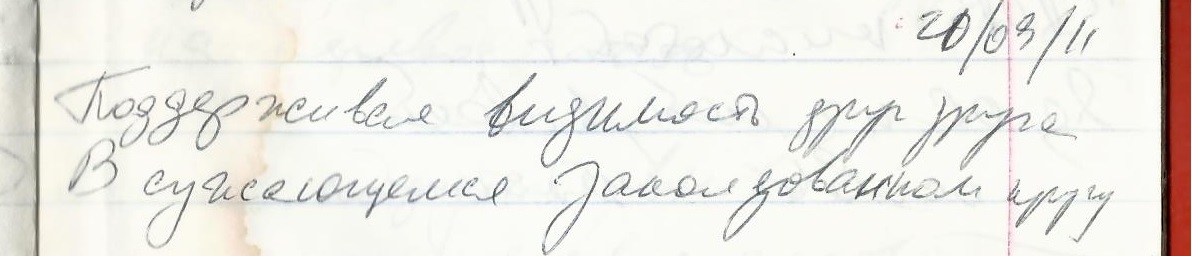 20/09/11
Поддерживая видимость друг друга
В сужающемся заколдованном кругу